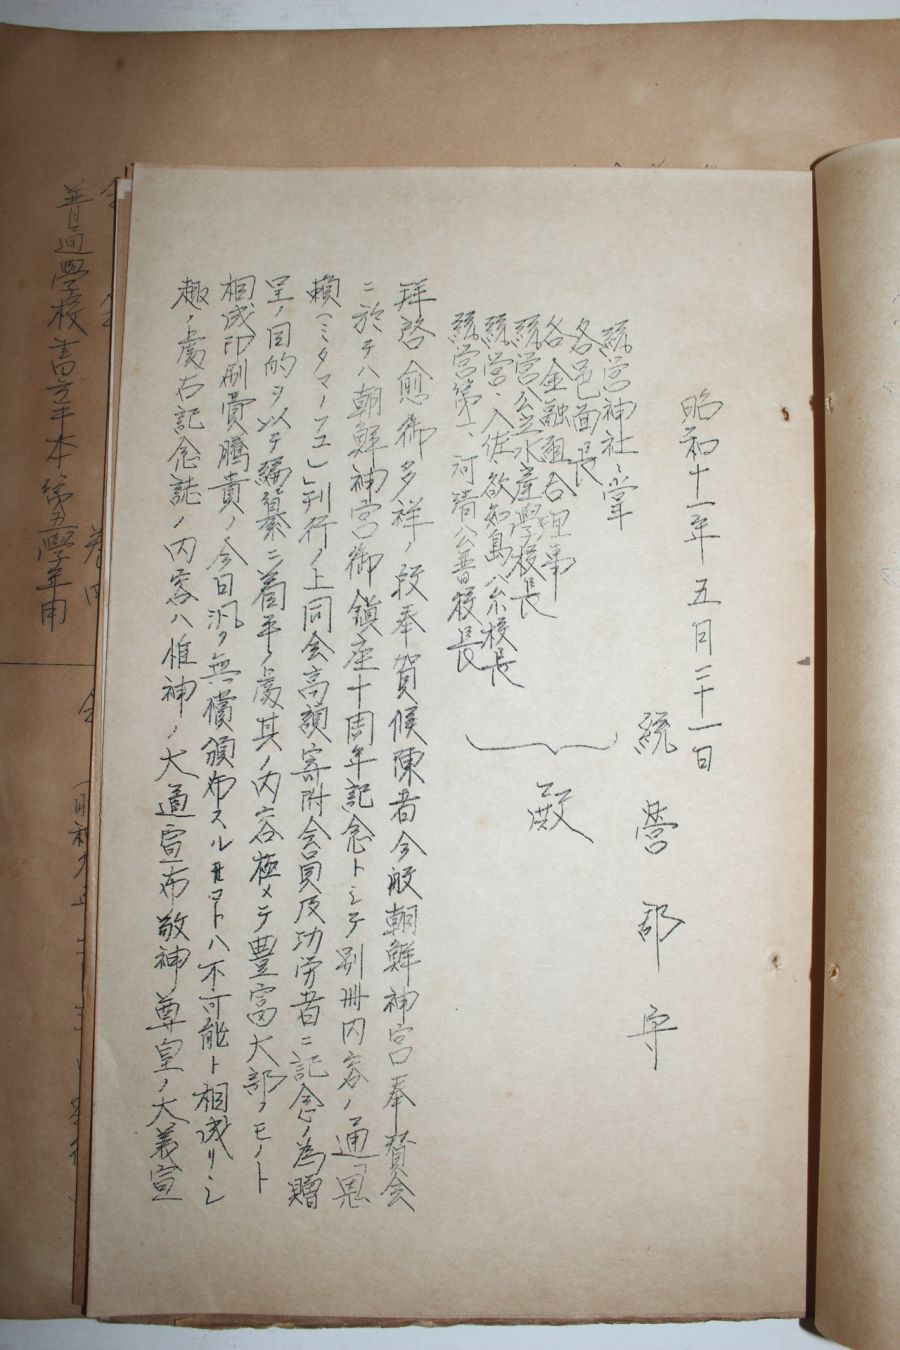 昭和十一年五月二十一日
統営郡守
統営神社々掌
各邑面長
各金融組合理事
統営公立水産學校長
統営、入佐、欲知島公小校長
統営第一、河清公普校長
殿
拜啓愈御多祥ノ段奉賀候陳者今般朝鮮神宮奉賛会
ニ於テハ朝鮮神宮御鎮座十周年記念トシテ別冊内容ノ通「恩
頼(ミタマノフユ)」刊行ノ上同会高額寄附会員及功労者ニ記念ノ為贈
呈ノ目的ヲ以テ編纂ニ着手ノ處其ノ内容極メテ豊富大部ノモノト
相成印刷費騰貴ノ今日汎ク無償頒布スルコトハ不可能ト相成リシ
趣ノ處右記念誌ノ内容ハ惟神ノ大道宣布敬神尊皇ノ大義宣
巻四
普通學校書方手本第五學年用